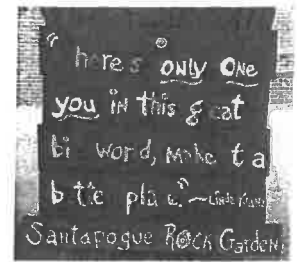 " here's only one
you in this g eat
bi word, make t a
b tte pla
Santapogue Rock Garden